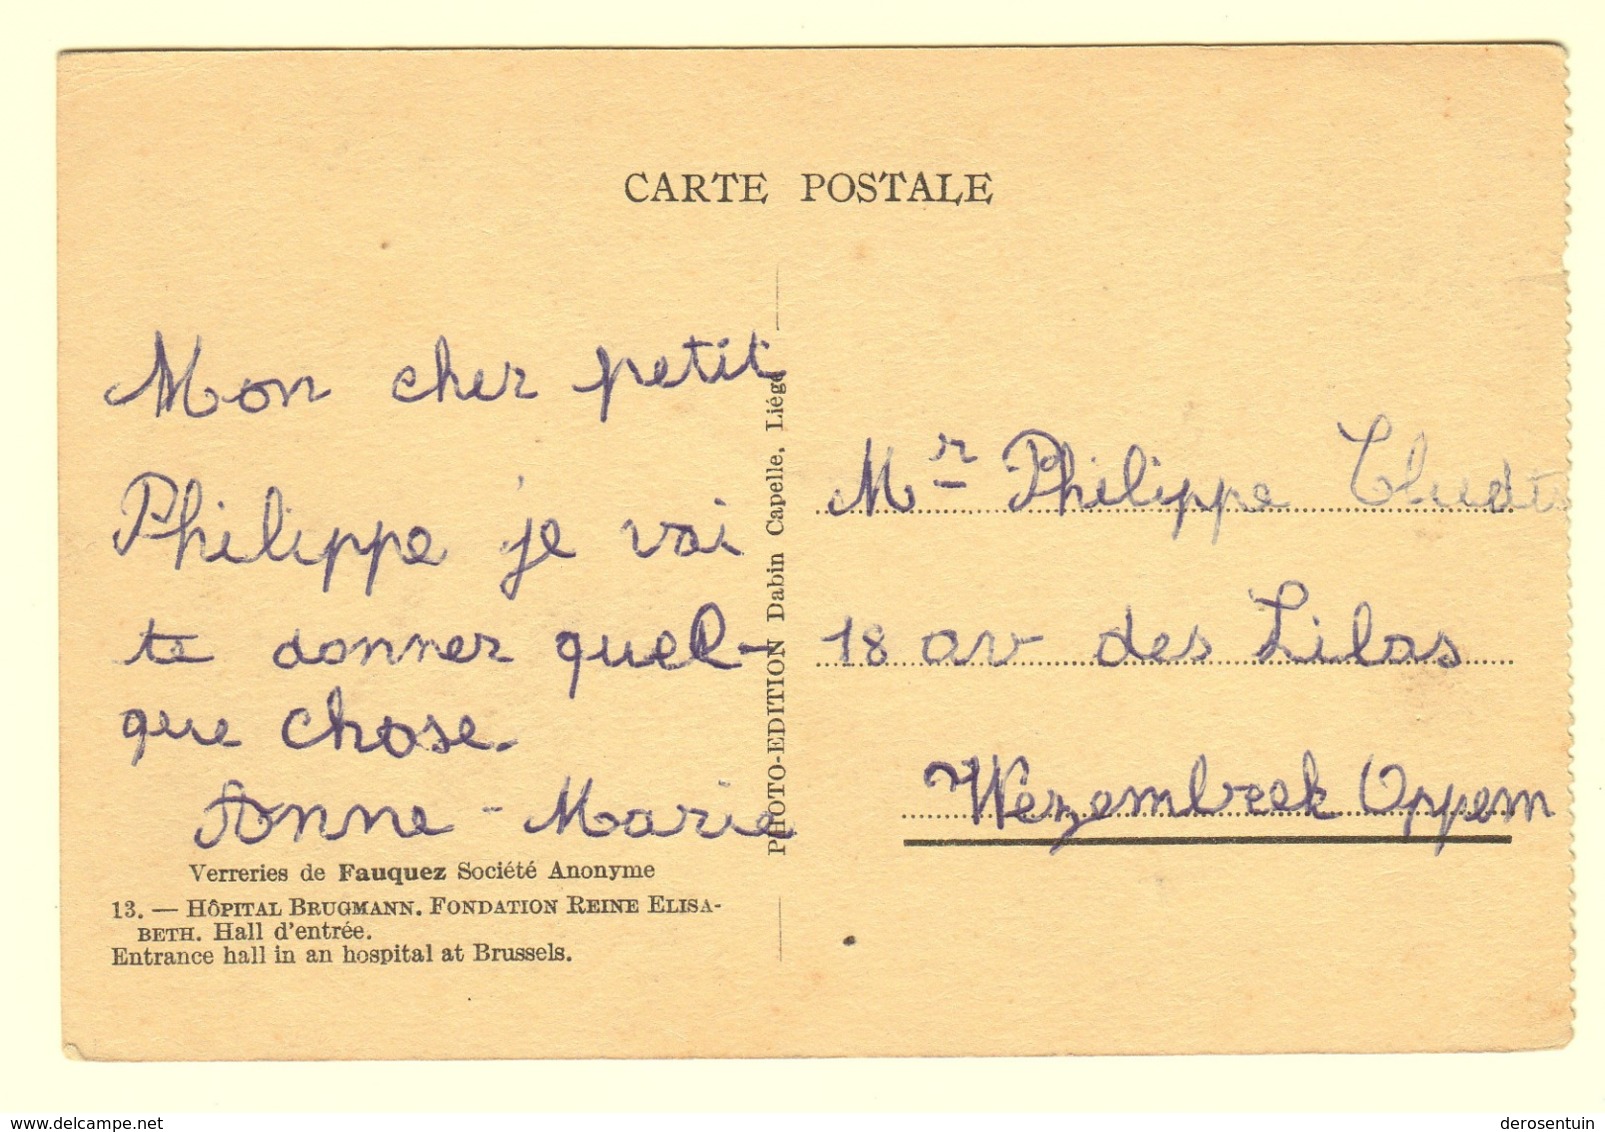 CARTE POSTALE
Mon cher petit
Philippe je vai
te donner quel-
que chose.
Anne-Marie
Verreries de Fauquez Société Anonyme
13. — HÔPITAL BRUGMANN. FONDATION REINE ELISA-
BETH. Hall d'entrée.
Entrance hall in an hospital at Brussels.
PHOTO-EDITION Dabin Capelle, Liége
Mr Philippe
18 av des Lilas
Wezembeek Oppem
delcampe.net
derosentuin